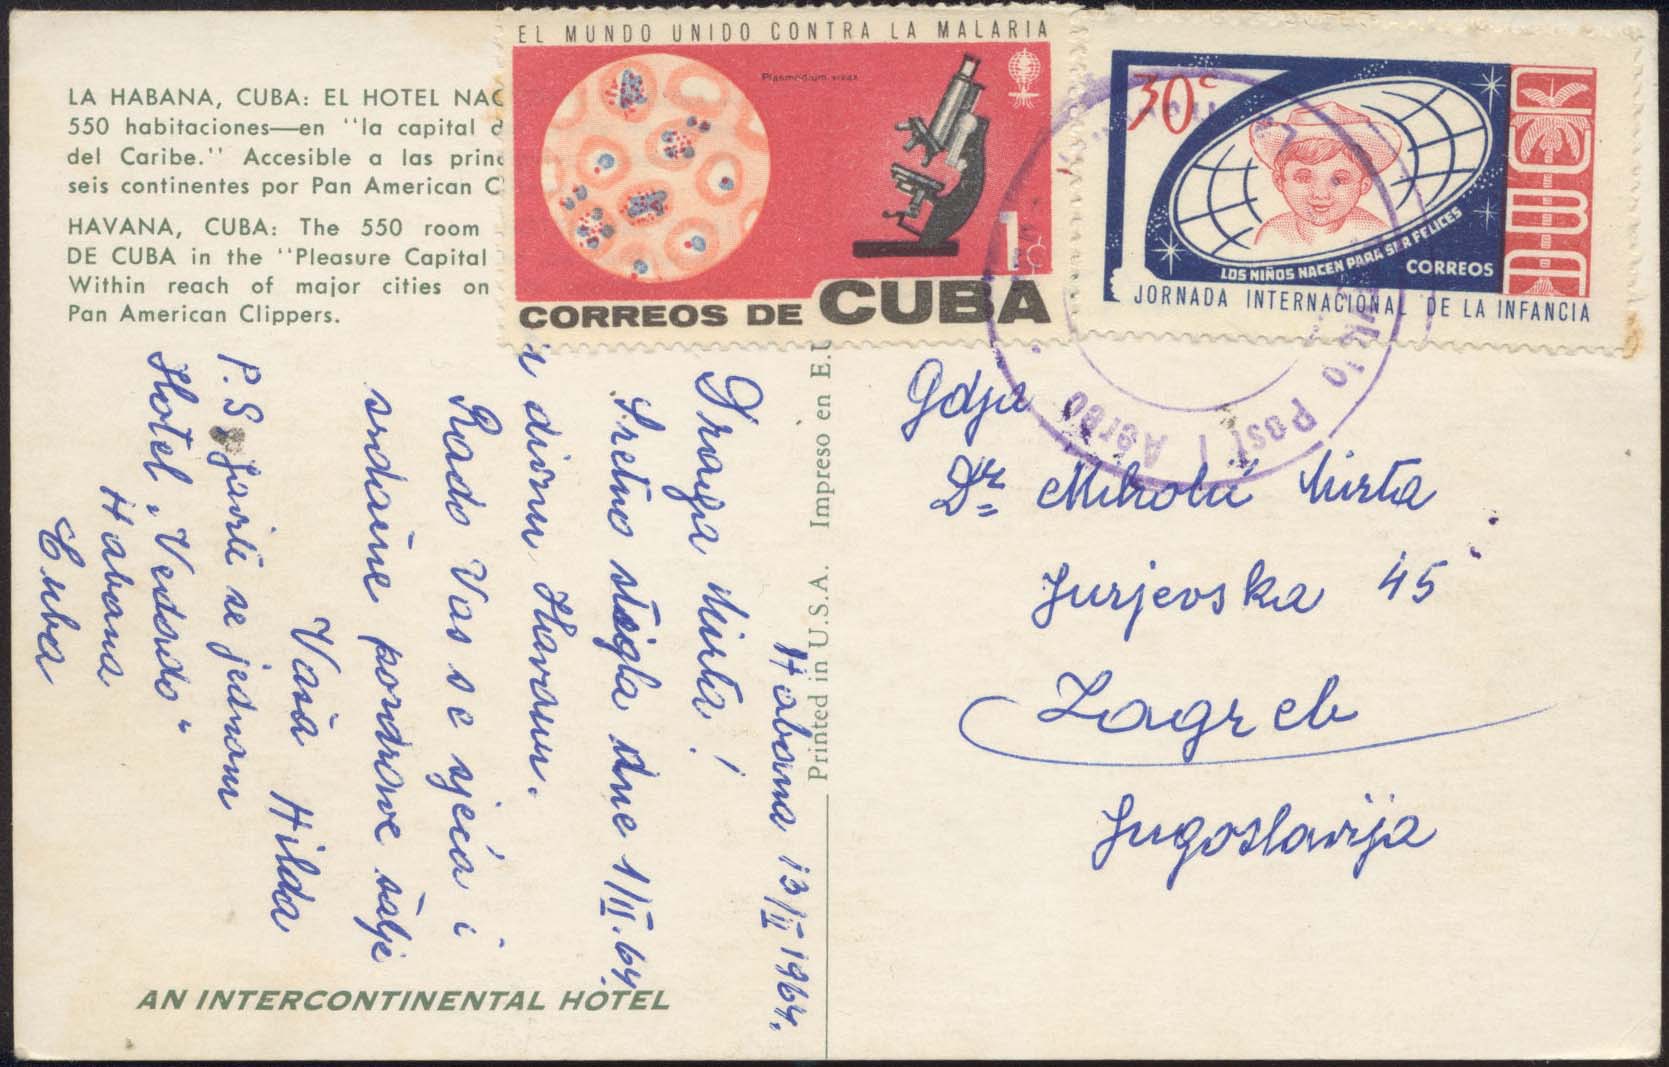 LA HABANA, CUBA: EL HOTEL NAC
550 habitaciones—en "la capital d
del Caribe." Accesible a las princ
seis continentes por Pan American C
HAVANA, CUBA: The 550 room
DE CUBA in the "Pleasure Capital
Within reach of major cities on
Pan American Clippers.
EL MUNDO UNIDO CONTRA LA MALARIA
Plasmodium vivax
1c
CORREOS DE CUBA
30c
CUBA
LOS NIÑOS NACEN PARA SER FELICES
CORREOS
JORNADA INTERNACIONAL DE LA INFANCIA
Post Aereo
Printed in U.S.A. Impreso en E.U
Habana 13/II 1964.
Draga Mirta!
Sretno stigla dne 1/II.64.
u divnu Havanu.
Rado Vas se sjeća i
srdačne pozdrave šalje
Vaša Hilda
P.S. Javite se jednom
Hotel "Vedado"
Habana
Cuba
AN INTERCONTINENTAL HOTEL
Gdja
Dr Mirta
Jurjevska 45
Zagreb
Jugoslavija